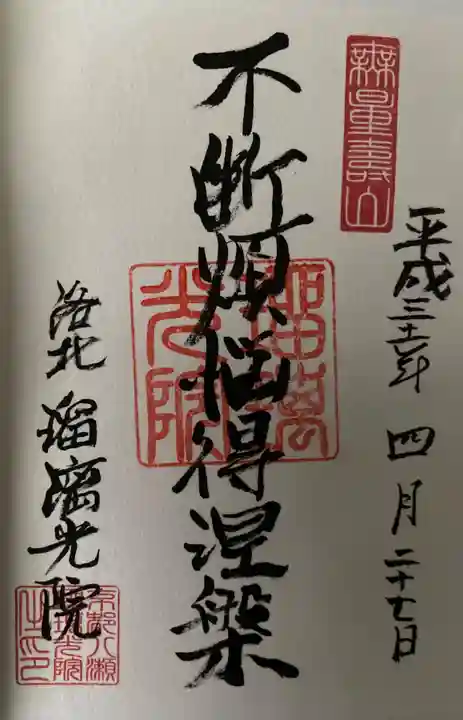 無量壽山
平成三十一年 四月 二十七日
不断煩悩得涅槃
瑠璃光院
洛北 瑠璃光院
京都八瀬瑠璃光院之印